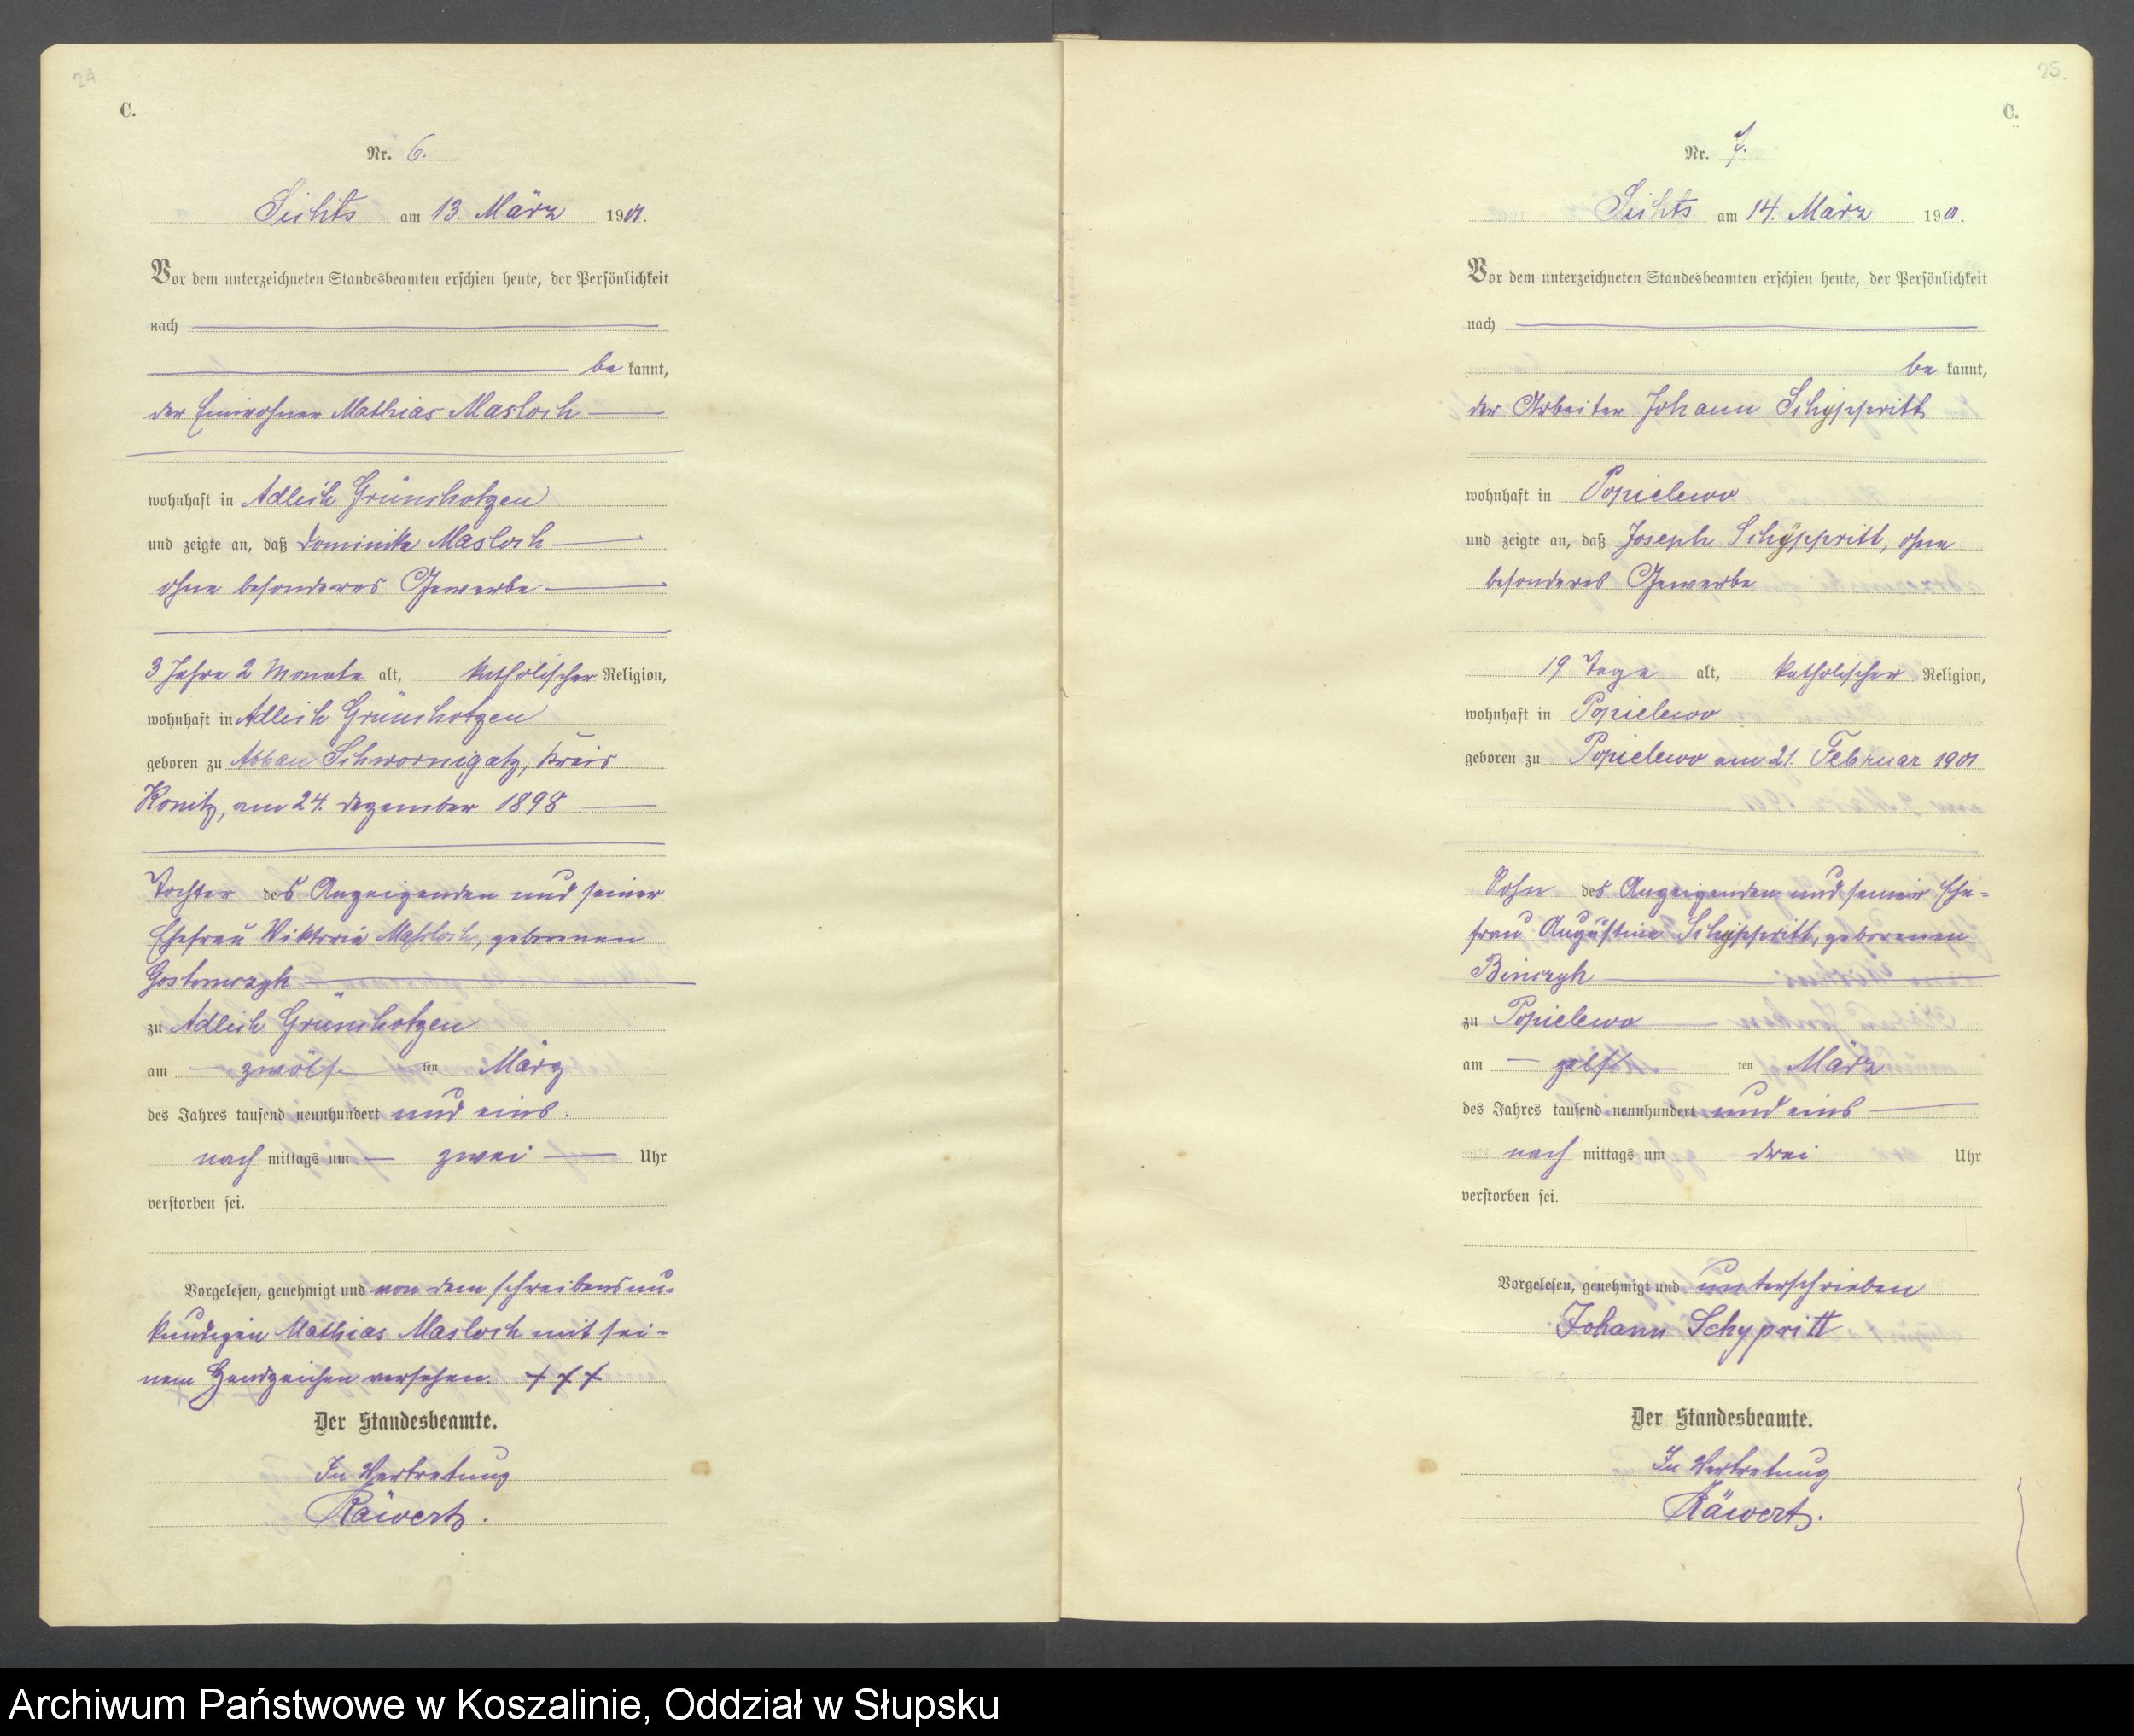 24
C.
Nr. 6.
Lichts am 13. März 1901.
Vor dem unterzeichneten Standesbeamten erschien heute, der Persönlichkeit
nach
be kannt,
der Einwohner Mathias Masloch
wohnhaft in Adlich Grünchotzen
und zeigte an, daß Dominika Masloch
ohne besonderes Gewerbe
3 Jahre 2 Monate alt, katholischer Religion,
wohnhaft in Adlich Grünchotzen
geboren zu Abbau Schwornigatz, Kreis
Konitz, am 24. Dezember 1898
Tochter des Anzeigenden und seiner
Ehefrau Viktoria Masloch, geborenen
Gostomczyk
zu Adlich Grünchotzen
am zwölf ten März
des Jahres tausend neunhundert und eins.
nach mittags um zwei Uhr
verstorben sei.
Vorgelesen, genehmigt und von dem schreibensun-
kundigen Mathias Masloch mit sei-
nem Handzeichen versehen. +++
Der Standesbeamte.
In Vertretung
Räwert.
25.
C.
Nr. 7.
Lichts am 14. März 1901.
Vor dem unterzeichneten Standesbeamten erschien heute, der Persönlichkeit
nach
be kannt,
der Arbeiter Johann Schyppritt
wohnhaft in Popielewo
und zeigte an, daß Joseph Schyppritt, ohne
besonderes Gewerbe
19 Tage alt, katholischer Religion,
wohnhaft in Popielewo
geboren zu Popielewo am 21. Februar 1901
Sohn des Anzeigenden und seiner Ehe-
frau Augustine Schyppritt, geborenen
Binczyk
zu Popielewo
am zwölf ten März
des Jahres tausend neunhundert und eins
nach mittags um drei Uhr
verstorben sei.
Vorgelesen, genehmigt und unterschrieben
Johann Schypritt
Der Standesbeamte.
In Vertretung
Räwert.
Archiwum Państwowe w Koszalinie, Oddział w Słupsku